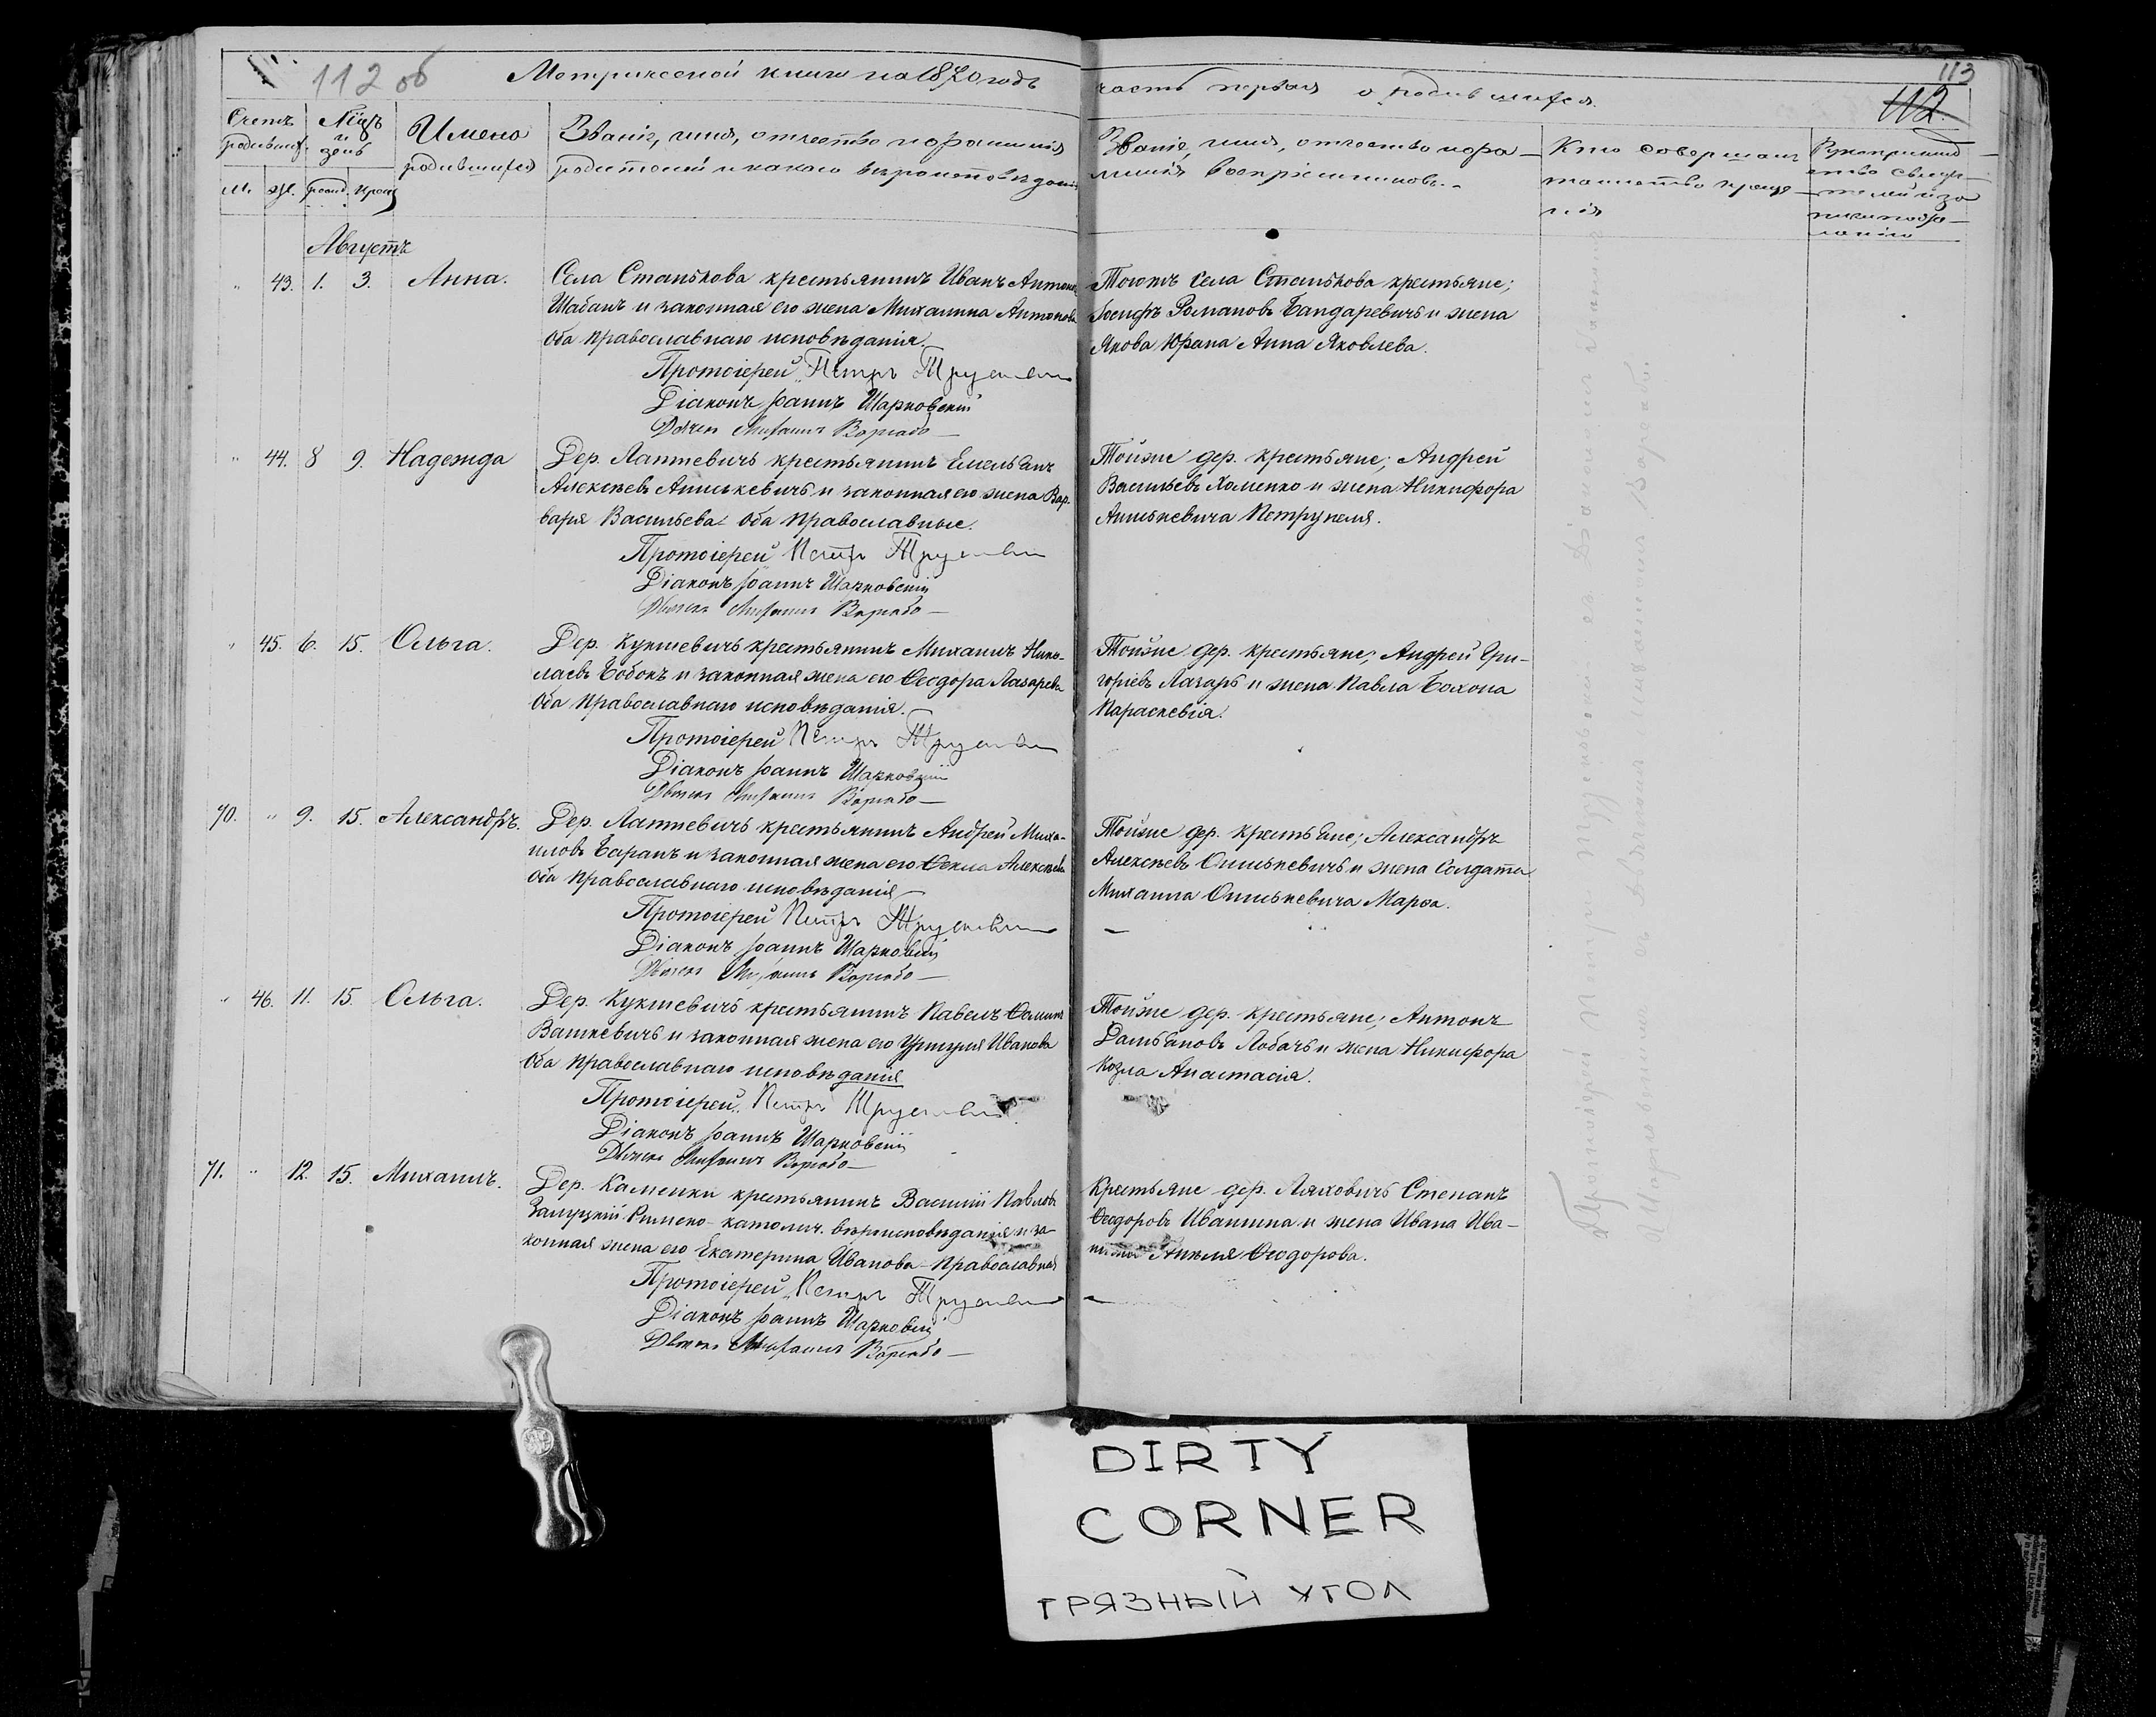 112 об
Метрической книги на 1870 годъ
часть первая о родившихся.
113
112
Счетъ родившихс.
Мсцъ и день
Имена родившихся
Званіе, имя, отчество и фамилія
родителей и какого вѣроисповѣданія
Званіе, имя, отчество и фа-
милія воспріемниковъ.
Кто совершалъ
таинство креще-
нія
Рукоприклад-
ство свидѣ-
телей
м. ж. рожд. крещ.
Августъ
" 43. 1. 3. Анна.
Села Станькова крестьянинъ Иванъ Антоновъ
Шабанъ и законная его жена Михалина Антонова
Оба православнаго исповѣданія.
Протоіерей Петръ
Діаконъ Іоаннъ Шарковскій
Михаилъ
Тогожъ села Станькова крестьяне;
Іосифъ Романовъ Бандаревичъ и жена
Якова Юрана Анна Яковлева.
" 44. 8 9. Надежда
Дер. Лаппевичъ крестьянинъ Емельянъ
Алексѣевъ Аниськевичъ и законная его жена Вар-
вара Васильева Оба православные.
Протоіерей Петръ
Діаконъ Іоаннъ Шарковскій
Михаилъ
Тойже дер. крестьяне; Андрей
Васильевъ Хоменко и жена Никифора
Аниськевича Петрунеля.
" 45. 6. 15. Ольга.
Дер. Кукшевичъ крестьянинъ Михаилъ Нико-
лаевъ Бобокъ и законная жена его Ѳеодора Лазарева
Оба православнаго исповѣданія.
Протоіерей Петръ
Діаконъ Іоаннъ Шарковскій
Михаилъ
Тойже дер. крестьяне; Андрей Гри-
горіевъ Лазарь и жена Павла
Параскевія.
70. " 9. 15. Александръ.
Дер. Лаппевичъ крестьянинъ Андрей Миха-
иловъ Баранъ и законная жена его Ѳекла Алексѣева
Оба православнаго исповѣданія
Протоіерей Петръ
Діаконъ Іоаннъ Шарковскій
Михаилъ
Тойже дер. крестьяне; Александръ
Алексѣевъ Ониськевичъ и жена солдата
Михаила Ониськевича Марѳа.
" 46. 11. 15. Ольга.
Дер. Кукшевичъ крестьянинъ Павелъ Ѳоминъ
Вашкевичъ и законная жена его Иванова
Оба православнаго исповѣданія
Протоіерей Петръ
Діаконъ Іоаннъ Шарковскій
Михаилъ
Тойже дер. крестьяне; Антонъ
Дамьяновъ Лобачъ и жена Никифора
Козла Анастасія.
71. " 12. 15. Михаилъ.
Дер. Каменки крестьянинъ Василій Павловъ
Залуцкій Римско-католич. вѣроисповѣданія и за-
конная жена его Екатерина Иванова Православная
Протоіерей Петръ
Діаконъ Іоаннъ Шарковскій
Михаилъ
Крестьяне дер. Ляховичъ Степанъ
Ѳеодоровъ Ивашина и жена Ивана Ива-
Ѳеодорова.
Протоіерей Петръ
DIRTY
CORNER
ГРЯЗНЫЙ УГОЛ